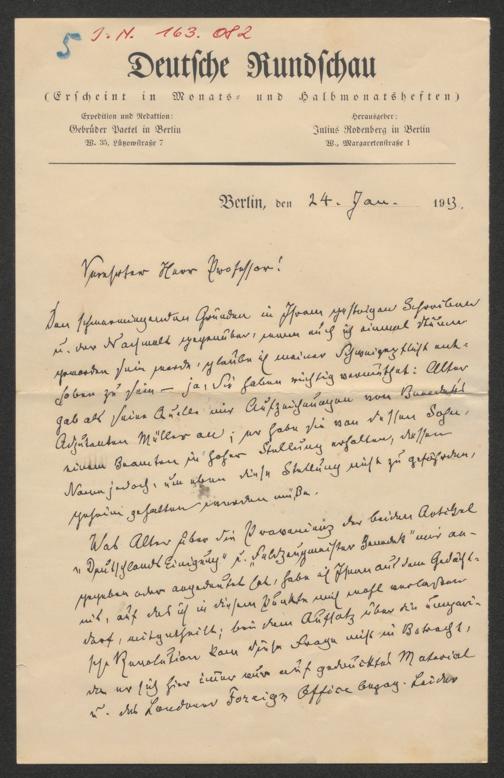 5 I. N. 163.082
Deutsche Rundschau
(Erscheint in Monats- und Halbmonatsheften)
Expedition und Redaktion:
Gebrüder Paetel in Berlin
W. 35, Lützowstraße 7
Herausgeber:
Julius Rodenberg in Berlin
W., Margaretenstraße 1
Berlin, den 24. Jan. 1913.
Verehrter Herr Professor!
Den schwerwiegenden Gründen in Ihrem gestrigen Schreiben
u. der Nachwelt gegenüber, wenn auch ich einmal stumm
geworden sein werde, glaube ich meiner Schweigepflicht ent-
hoben zu sein – ja, Sie haben richtig vermuthet: Alter
gab als seine Quelle mir Aufzeichnungen von Benedek's
Adjutanten Müller an; er habe sie von dessen Sohn,
einem Beamten in hoher Stellung erhalten, dessen
Name jedoch, um eben diese Stellung nicht zu gefährden,
geheim gehalten werden müße.
Was Alter über die Provenienz der beiden Artikel
„Deutschlands Einigung" u. „Feldzeugmeister Benedek" mir an-
gegeben oder angedeutet hat, habe ich Ihnen auf dem Gedächt-
niß, auf das ich in diesem Punkte mich wohl verlassen
darf, mitgetheilt; bei dem Aufsatz über die ungari-
sche Revolution kam diese Frage nicht in Betracht,
da er sich hier immer nur auf gedrucktes Material
u. das Londoner Foreign Office bezog. Leider